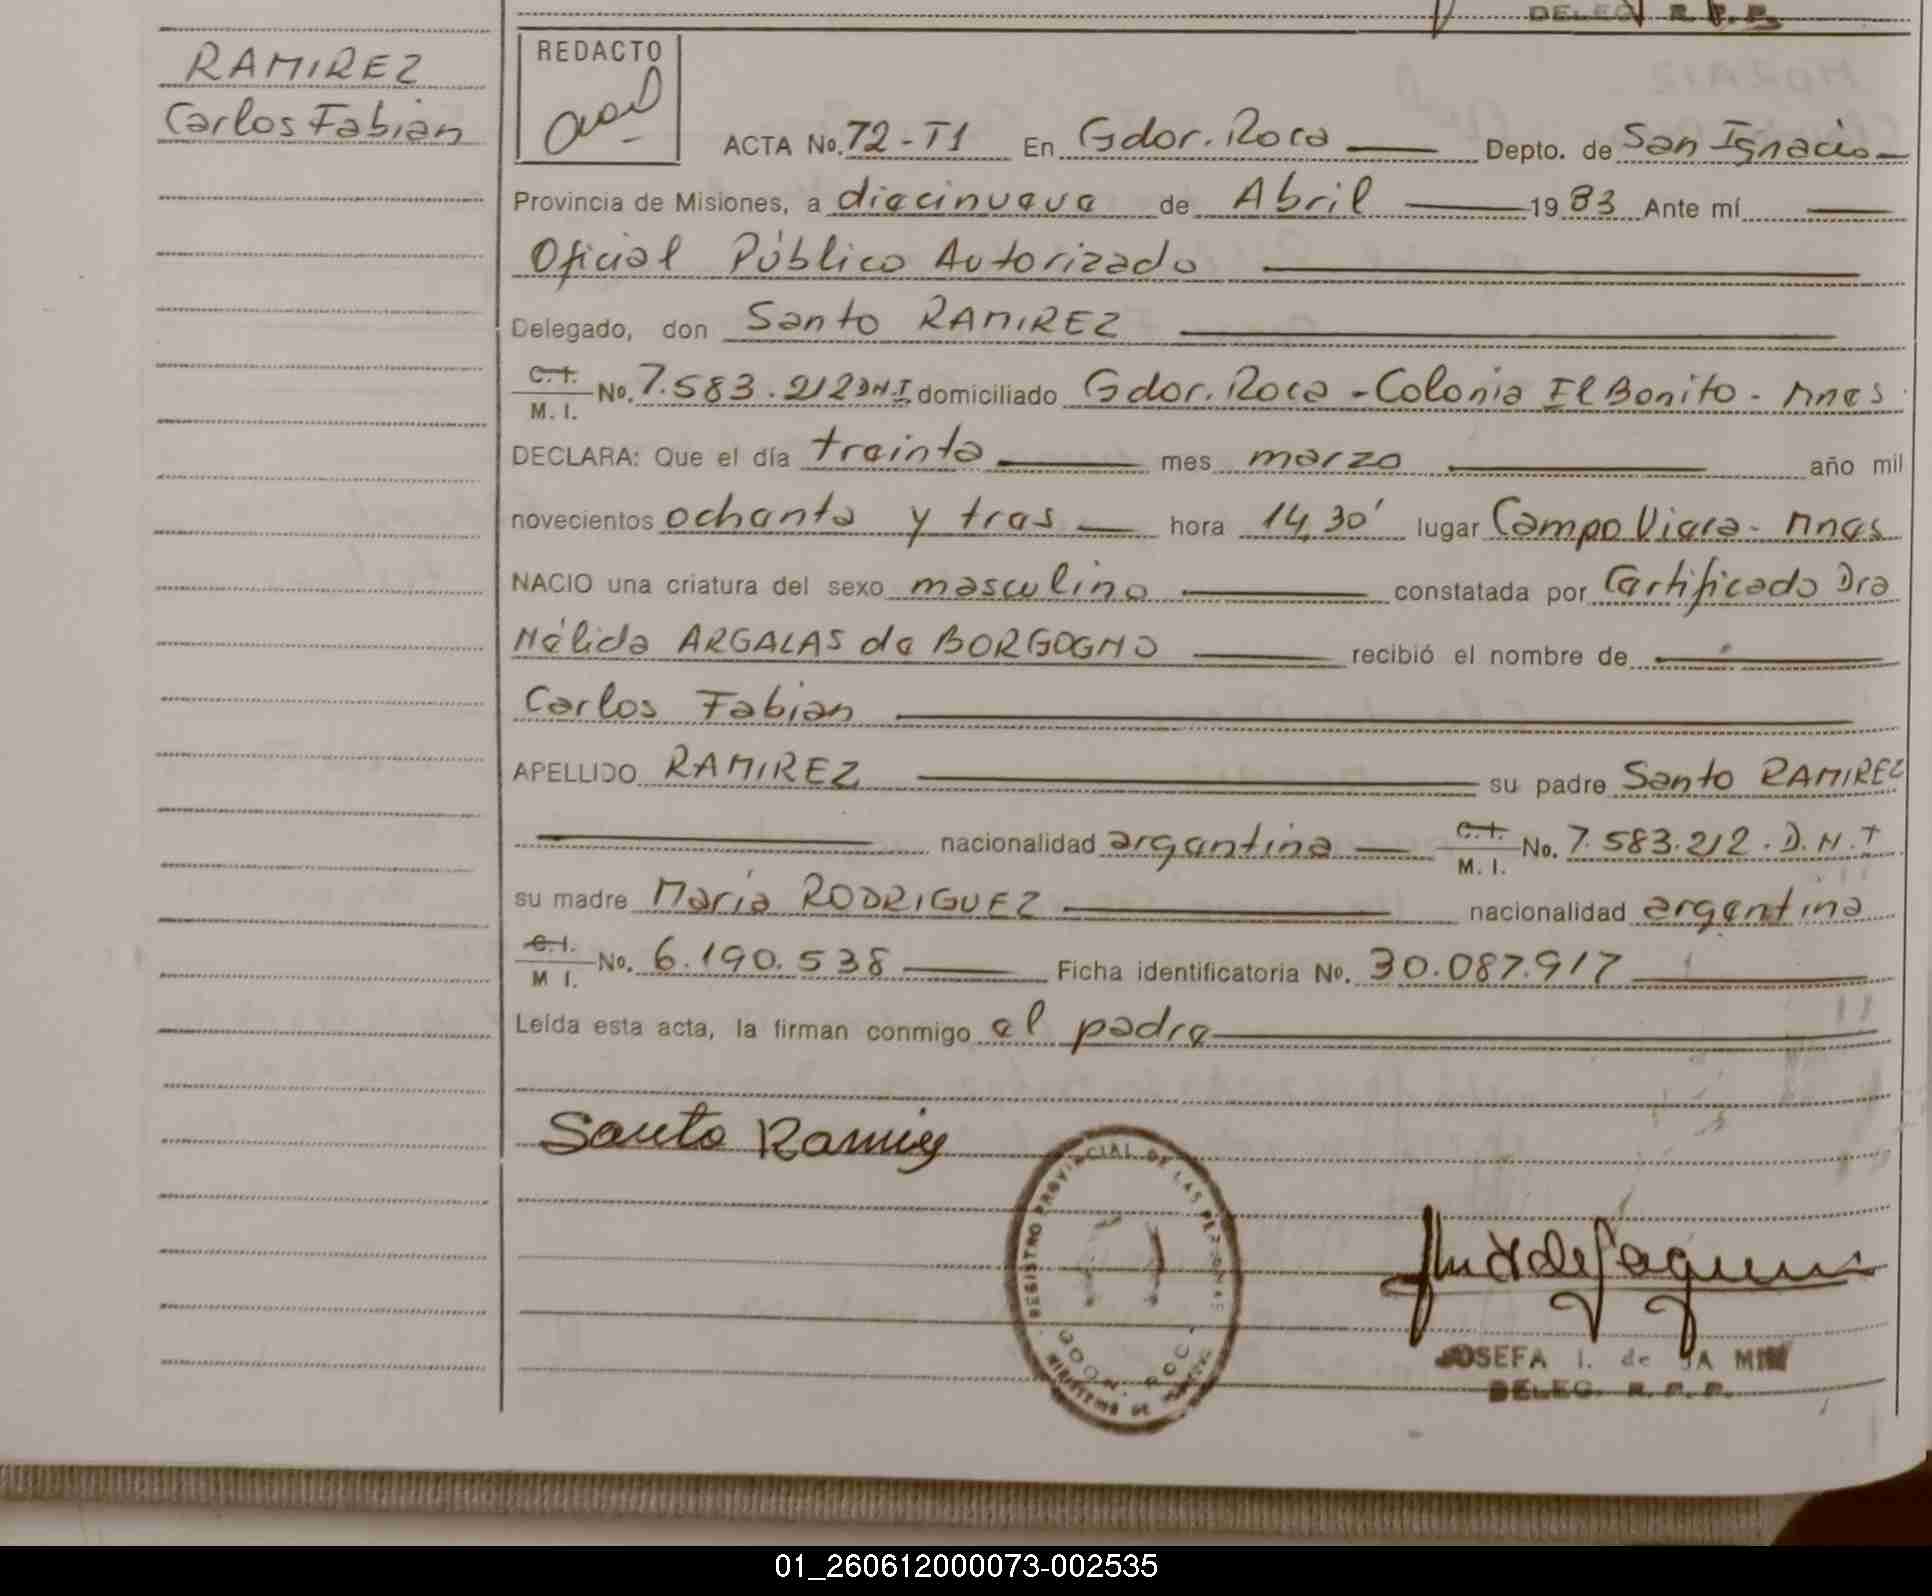 DELEG. R. P. P.
RAMIREZ
Carlos Fabian
REDACTO
ACTA No. 72-T1 En Gdor. Roca Depto. de San Ignacio
Provincia de Misiones, a diecinueve de Abril 1983 Ante mí
Oficial Público Autorizado
Delegado, don Santo RAMIREZ
C.I. M. I. No. 7.583.212 DNI domiciliado Gdor. Roca - Colonia El Bonito - Mnes
DECLARA: Que el día treinta mes marzo año mil
novecientos ochenta y tres hora 14,30' lugar Campo Viera - Mnes
NACIO una criatura del sexo masculino constatada por Certificado Dra
Nélida ARGALAS de BORGOGNO recibió el nombre de
Carlos Fabian
APELLIDO RAMIREZ su padre Santo RAMIREZ
nacionalidad argentina C.I. M. I. No. 7.583.212. D.N.I
su madre María RODRIGUEZ nacionalidad argentina
C.I. M I. No. 6.190.538 Ficha identificatoria No. 30.087.917
Leída esta acta, la firman conmigo el padre
Santo Ramirez
REGISTRO PROVINCIAL DE LAS PERSONAS
GDOR. ROC
MINISTERIO DE
JOSEFA I. de
DELEG. R. P. P.
01_260612000073-002535